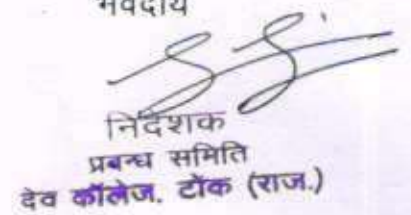 भवदीय
निदेशक
प्रबन्ध समिति
देव कॉलेज. टोंक (राज.)